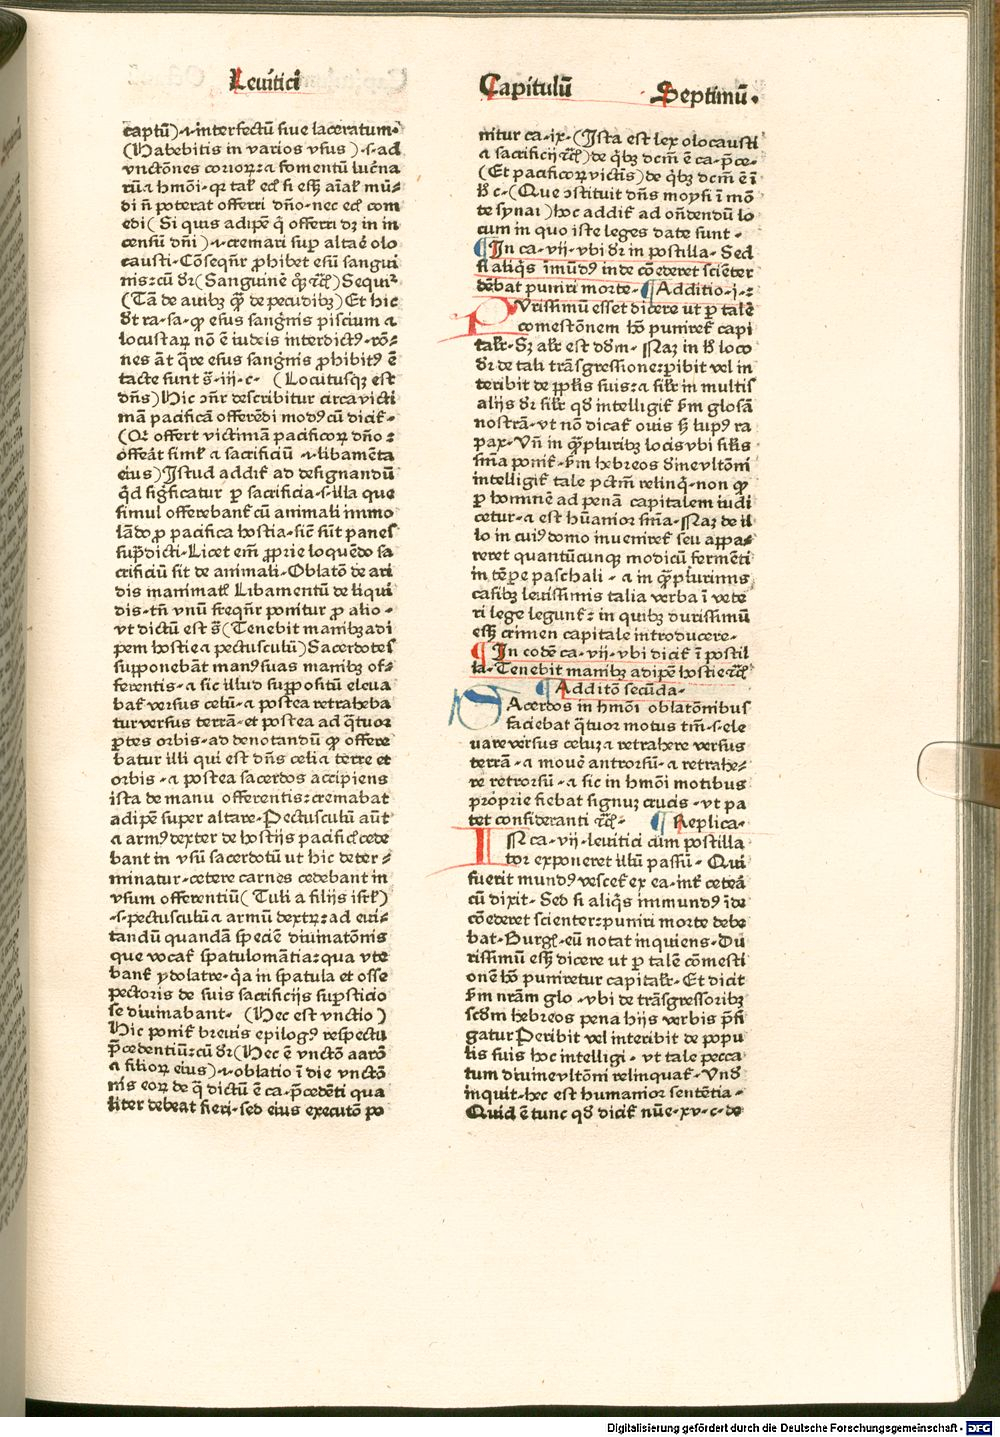 Leuitici
Capitulū Septimū.
captū)·⁊·interfectū siue laceratum·
(Habebitis in varios vsus)·s·ad
vnctōnes corioꝝ: ⁊ a fomentū lucīna
rū ⁊ hmōi· qꝫ tale ecl si esset aīal mū⸗
di nō poterat offerri dño· nec ecl com
edi (Si quis adipē q̄ offerri dꝫ in in
censū dñi)·⁊·cremari sup altarē olo
causti· Cōseqñr ꝓhibet esū sangui
nis: cū dr̄ (Sanguinē qꝫ ⁊cꝭ) Sequit᷑
(Tā de auibꝫ qꝫ de pecudibꝫ) Et hic
dt ra·sa· ꝙ esus sangnis piscium ⁊
locustaꝝ nō ē iudeis interdictꝰ· rō⸗
nes āt qre esus sangnis ꝓhibitꝰ ē
tacte sunt s̄·iij·c· (Locutusqꝫ est
dñs) Hic ꝯñr describitur circa victi
mā pacificā offerēdi modꝰ cū dicit᷑·
(Qͥ offert victimā pacificoꝝ dño:
offeāt siml ⁊ sacrificiū ·⁊·libamēta
eius) Istud addit᷑ ad designandū
qd significatur ꝑ sacrificia·s·illa que
simul offerebant᷑ cū animali immo
lādo ꝓ pacifica hostia· sic̄ sūt panes
supdicti· Licet em̄ ꝓprie loquēdo sa
crificiū sit de animali· Oblatō de ari
dis Libamentū de liqui
dis· tn̄ vnū freqñr ponitur ꝓ alio·
vt dictū est s̄ (Tenebit manibꝫ adi
pem hostie ⁊ pectusculū) Sacerdotes
supponebāt manꝰ suas manibꝫ of⸗
ferentis· ⁊ sic illud suppositū eleua
bat᷑ versus celū· ⁊ postea retraheba
tur versus terrā· et postea ad qͣtuor
ꝑtes orbis· ad denotandū ꝙ offere
batur illi qui est dñs celi ⁊ terre et
orbis· ⁊ postea sacerdos accipiens
ista de manu offerentis: cremabat
adipē super altare· Pectusculū aūt
⁊ armꝰ dexter de hostijs pacificꝭ cede
bant in vsū sacerdotū ut hic deter⸗
minatur· cetere carnes cedebant in
vsum offerentiū (Tuli a filijs isrl)
·s·pectusculū ⁊ armū dextꝝ: ad eui⸗
tandū quandā speciē diuinatōnis
que vocat᷑ spatulomātia: qua vte
bant᷑ ydolatre· qꝫ in spatula et osse
pectoris de suis sacrificijs supsticio
se diuinabant· (Hec est vnctio)
Hic ponit᷑ breuis epilogꝰ respectu
p̄cedentiū: cū dr̄ (Hec ē vnctō aarō
⁊ filioꝝ eius)·⁊·oblatio ī die vnctō
nis eoꝝ de q̄ dictū ē ca·p̄cedēti qua
liter debeat fieri· sed eius executō po
nitur ca·ix· (Ista est lex olocausti
⁊ sacrificij ⁊cꝭ) de qͥbꝫ dcm̄ ē ca·p̄ce·
(Et pacificoꝝ victīs) de qͥbꝫ dcm̄ ē ī
h̄ c· (Que ꝯstituit dñs moysi ī mō
te synai) hoc addit᷑ ad oñdendū lo
cum in quo iste leges date sunt·
¶ In ca·vij· vbi dr̄ in postilla· Sed
si aliqͥs īmūdꝰ inde cōederet sciēter
debat puniri morte· ¶ Additio·j·:
Durissimū esset dicere ut ꝑ talē
comestōnem hō puniret᷑ capi
talr̄· Sꝫ alr̄ est ddm· Naꝫ in h̄ loco
dr̄ de tali trāsgressione: ꝑibit vel in
teribit de pplis suis: ⁊ silr̄ in multis
alijs dr̄ silr̄ qd intelligit᷑ ẜm glosā
nostrā· vt nō dicat᷑ ouis s lupꝰ ra
pax· Vn̄ in qꝫpluribꝫ locis vbi silis
snīa ponit᷑· ẜm hebreos
intelligit᷑ tale pctm̄ relinqͥ· non ꝙ
ꝑ hominē ad penā capitalem iudi
cetur· ⁊ est hūanior snīa· Naꝫ de il
lo in cuiꝰ domo inueniret᷑ seu appa⸗
reret quantūcunqꝫ modicū fermēti
in tēpe paschali · ⁊ in qꝫplurimis
casibꝫ leuissimis talia verba ī vete
ri lege legunt᷑: in quibꝫ durissimū
esset crimen capitale introducere·
¶ In eodē ca·vij· vbi dicit᷑ ī postil
la· Tenebit manibꝫ adipē hostie ⁊cꝭ
¶ Additō secūda·
SAcerdos in hmōi oblatōnibus
faciebat qͣtuor motus tm̄·s·ele
uare versus celuꝫ ⁊ retrahere versus
terrā· ⁊ mouē antrorsū· ⁊ retrahe⸗
re retrorsū· ⁊ sic in hmōi motibus
proprie fiebat signuꝫ crucis· vt pa
tet consideranti ⁊cꝭ· ¶ Replica·
IN ca·vij·leuitici cum postilla
tor exponeret illū passū· Qui
fuerit mundꝰ vescet᷑ ex ea· int᷑ ceteā
cū dixit· Sed si aliqͥs immundꝰ īde
cōederet scienter: puniri morte debe
bat· Burgꝭ· eū notat inquiens· Du
rissimū esset dicere ut ꝑ talē cōmesti
onē hō puniretur capitalr̄· Et dicit
ẜm nr̄am glo· vbi de trāsgressoribꝫ
scdm hebreos pena hijs verbis p̄fi
gatur Peribit vel interibit de popu
lis suis hoc intelligi· vt tale pecca
tum diuine vltōni relinquat᷑· Vnd
inquit· hec est humanior sentētia·
Quid ē tunc qd dicit᷑ nūe·xv·c·de
Digitalisierung gefördert durch die Deutsche Forschungsgemeinschaft - DFG